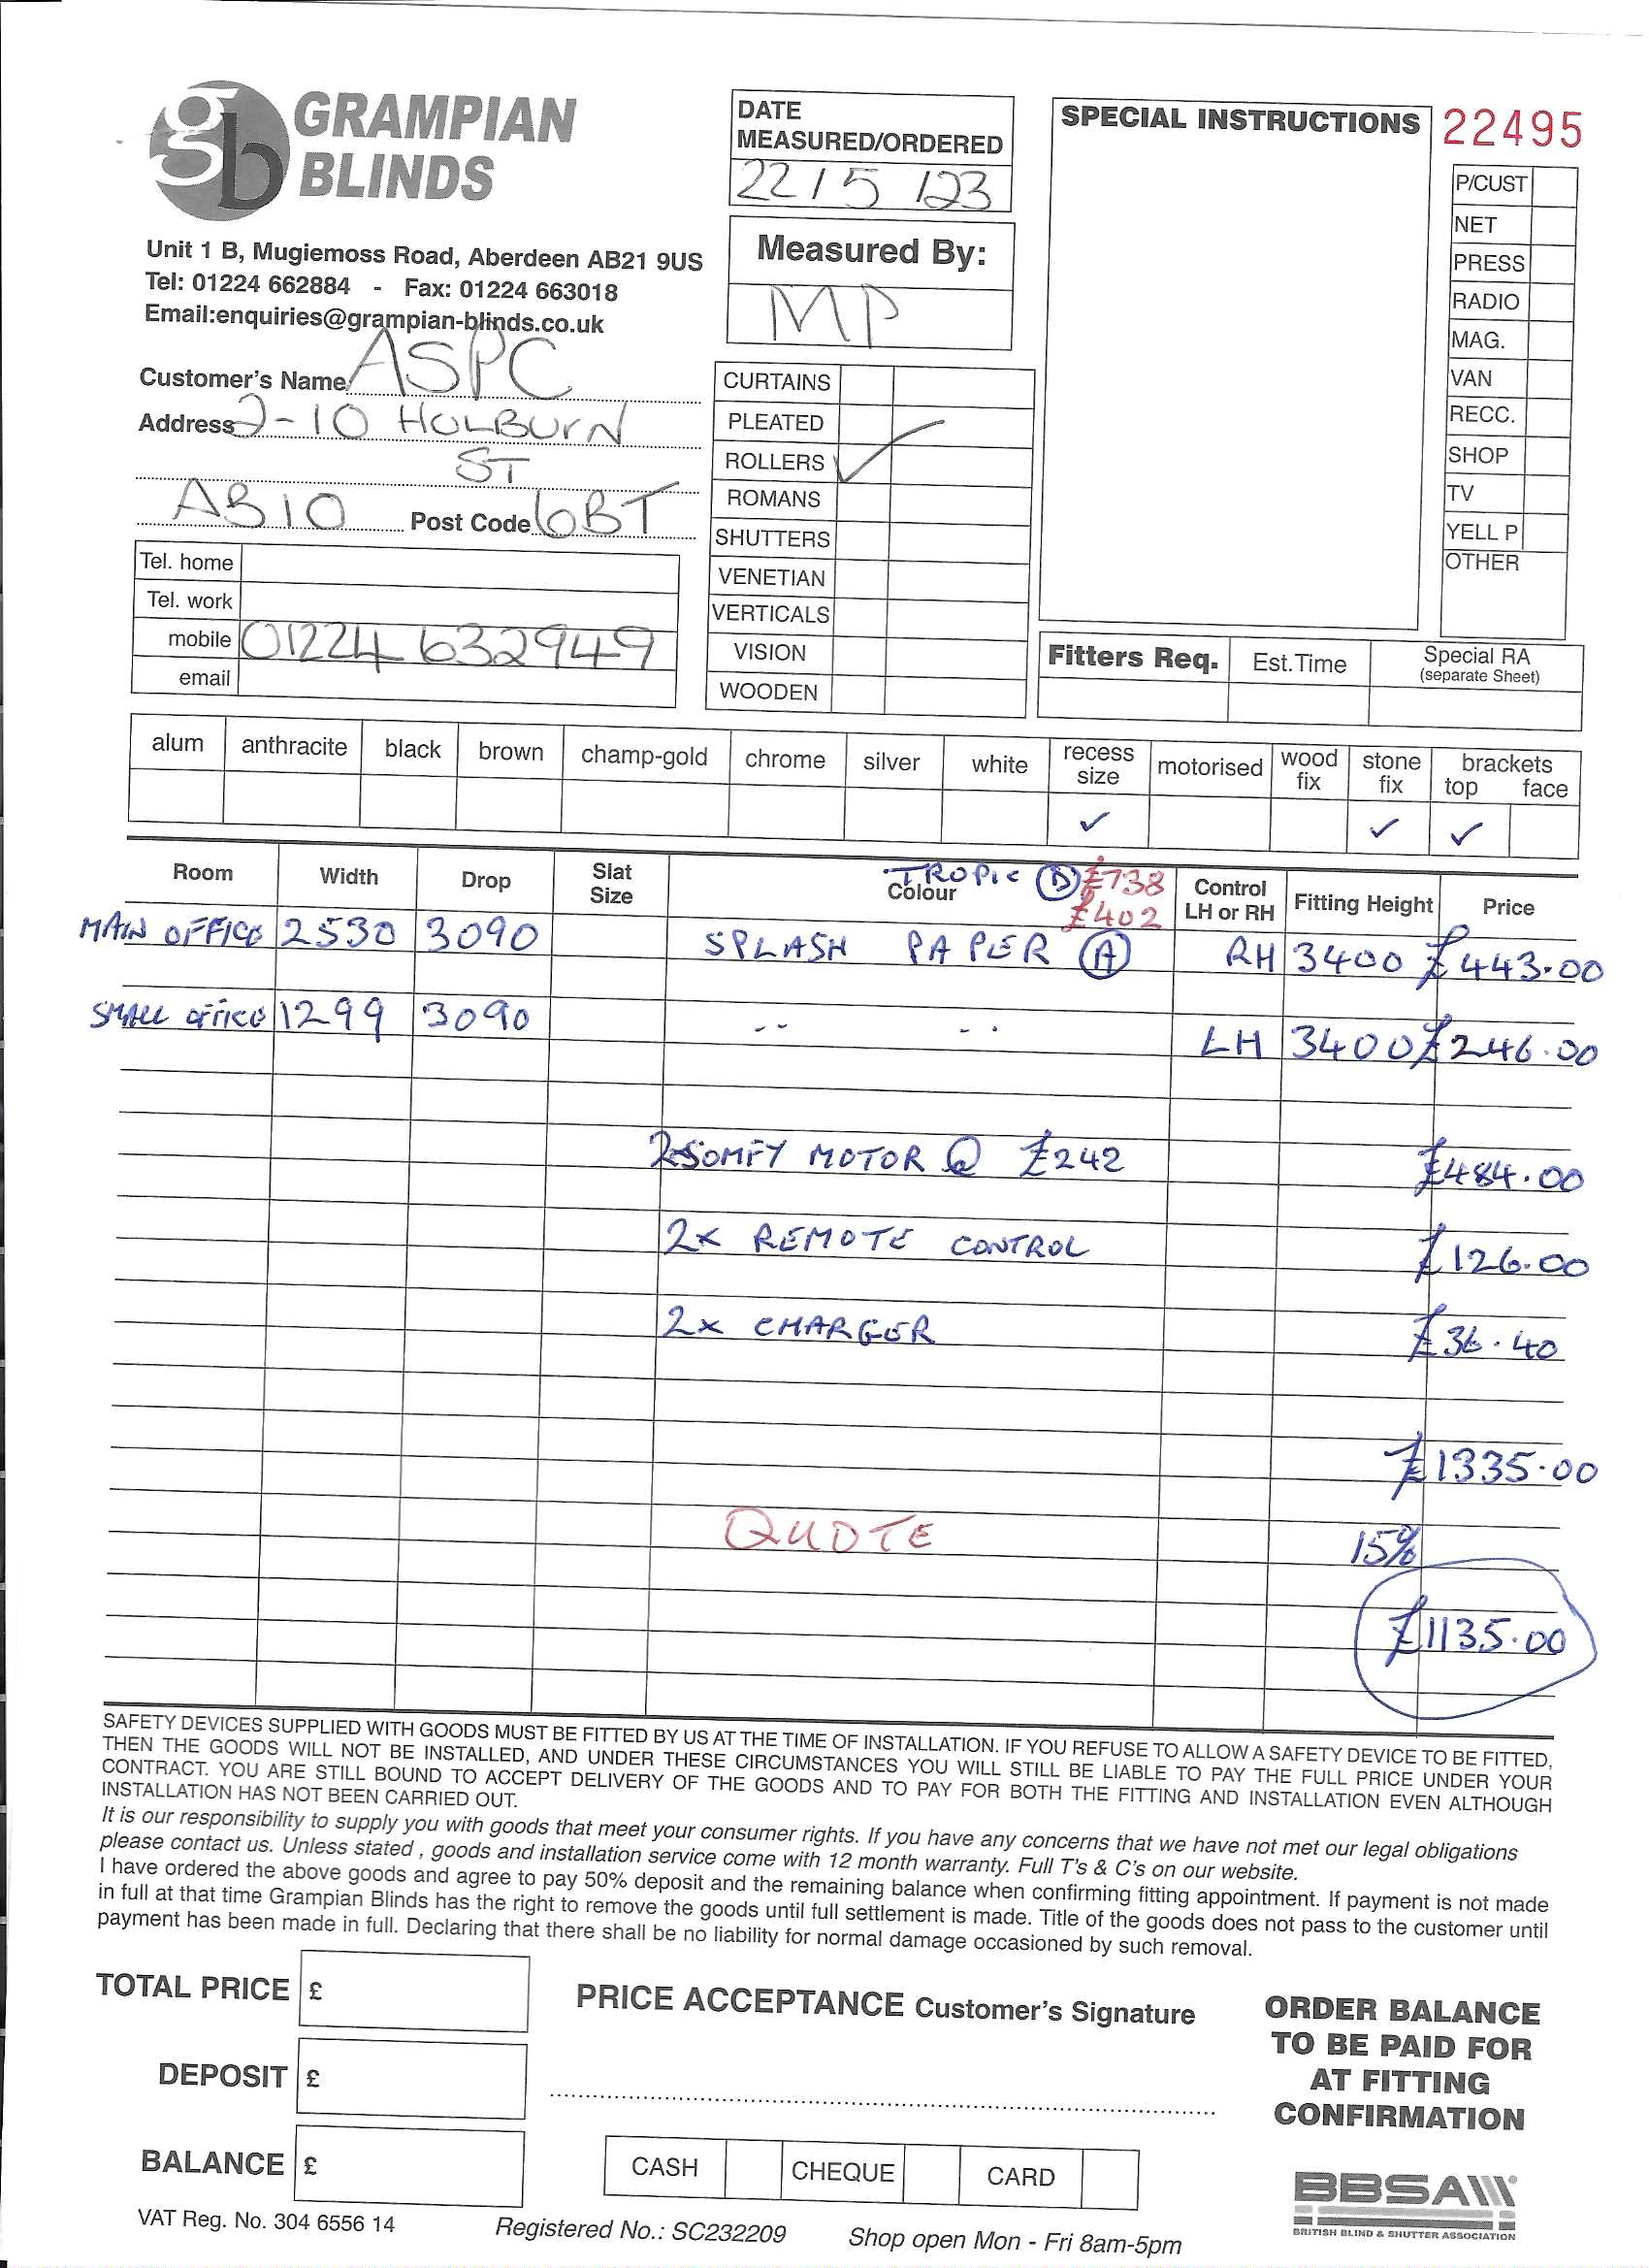 gb GRAMPIAN
BLINDS
Unit 1 B, Mugiemoss Road, Aberdeen AB21 9US
Tel: 01224 662884 - Fax: 01224 663018
Email:enquiries@grampian-blinds.co.uk
Customer's Name ASPC
Address 2-10 HOLBURN
ST
AB10 Post Code 6BT
Tel. home
Tel. work
mobile 01224 632949
email
DATE
MEASURED/ORDERED
22/5/23
Measured By:
MP
CURTAINS
PLEATED
ROLLERS ✓
ROMANS
SHUTTERS
VENETIAN
VERTICALS
VISION
WOODEN
SPECIAL INSTRUCTIONS
22495
P/CUST
NET
PRESS
RADIO
MAG.
VAN
RECC.
SHOP
TV
YELL P
OTHER
Fitters Req. Est.Time Special RA
(separate Sheet)
alum anthracite black brown champ-gold chrome silver white recess size motorised wood fix stone fix brackets top face
✓ ✓ ✓
TROPIC (D) £738
£402
Room Width Drop Slat Size Colour Control LH or RH Fitting Height Price
MAIN OFFICE 2530 3090 SPLASH PAPER (A) RH 3400 £443.00
SMALL OFFICE 1299 3090 -- -- LH 3400 £246.00
2xSOMFY MOTOR @ £242 £484.00
2x REMOTE CONTROL £126.00
2x CHARGER £36.40
£1335.00
QUOTE 15%
£1135.00
SAFETY DEVICES SUPPLIED WITH GOODS MUST BE FITTED BY US AT THE TIME OF INSTALLATION. IF YOU REFUSE TO ALLOW A SAFETY DEVICE TO BE FITTED,
THEN THE GOODS WILL NOT BE INSTALLED, AND UNDER THESE CIRCUMSTANCES YOU WILL STILL BE LIABLE TO PAY THE FULL PRICE UNDER YOUR
CONTRACT. YOU ARE STILL BOUND TO ACCEPT DELIVERY OF THE GOODS AND TO PAY FOR BOTH THE FITTING AND INSTALLATION EVEN ALTHOUGH
INSTALLATION HAS NOT BEEN CARRIED OUT.
It is our responsibility to supply you with goods that meet your consumer rights. If you have any concerns that we have not met our legal obligations
please contact us. Unless stated , goods and installation service come with 12 month warranty. Full T's & C's on our website.
I have ordered the above goods and agree to pay 50% deposit and the remaining balance when confirming fitting appointment. If payment is not made
in full at that time Grampian Blinds has the right to remove the goods until full settlement is made. Title of the goods does not pass to the customer until
payment has been made in full. Declaring that there shall be no liability for normal damage occasioned by such removal.
TOTAL PRICE £
DEPOSIT £
BALANCE £
PRICE ACCEPTANCE Customer's Signature
CASH CHEQUE CARD
ORDER BALANCE
TO BE PAID FOR
AT FITTING
CONFIRMATION
BBSA
BRITISH BLIND & SHUTTER ASSOCIATION
VAT Reg. No. 304 6556 14 Registered No.: SC232209 Shop open Mon - Fri 8am-5pm